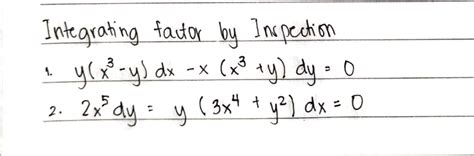 Integrating factor by Inspection
1. y(x³-y) dx -x (x³ +y) dy = 0
2. 2x⁵dy = y (3x⁴ + y²) dx = 0